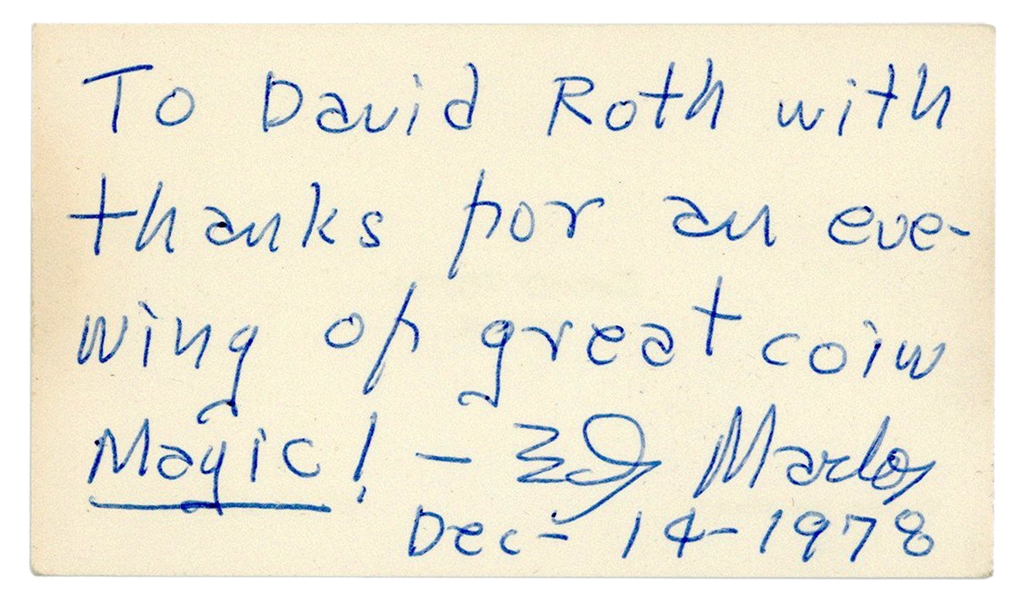 To David Roth with
thanks for an eve-
ning of great coin
Magic! - Ed Marlo
Dec- 14-1978